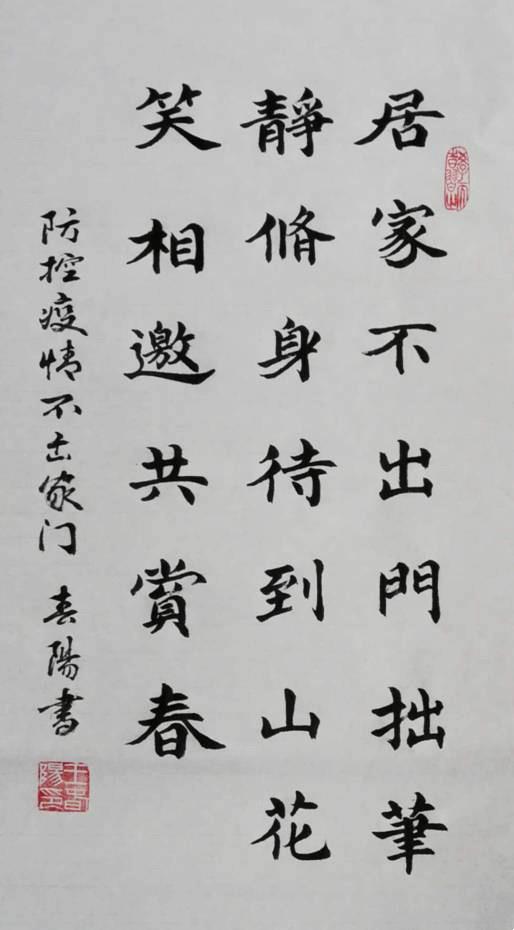 居家不出門拙筆
靜脩身待到山花
笑相邀共賞春
防控疫情不出家门 春陽書